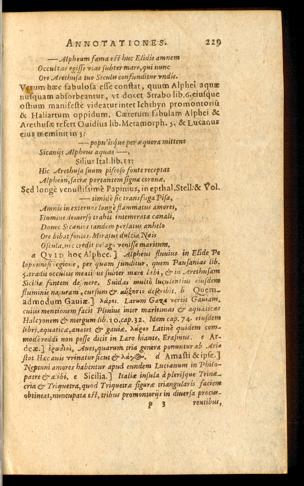 ANNOTATIONES. 229
—Alpheum fama est huc Elidis amnem
Occultas egisse vias subter mare, qui nunc
Ore Arethusa tuo Siculis confunditur vndis.
Verum hæc fabulosa esse constat, quum Alphei aquæ
nusquam absorbeantur, vt docet Strabo lib. 6. eiusque
ostium manifeste videatur inter Ichthyn promontoriũ
& Haliartum oppidum. Cæterùm fabulam Alphei &
Arethusæ refert Ouidius lib. Metamorph. 5. & Lucanus
eius meminit in 3:
—populisque per æquora mittens
Sicanijs Alpheus aquas—,
Silius Ital. lib. 14:
Hic Arethusa suum piscoso fonte receptat
Alpheon, sacræ portantem signa coronæ.
Sed longè venustissimè Papinius, in epithal. Stell. & Vol.
—tumidæ sic transfuga Pisæ,
Amnis in externos longè flammatus amores,
Flumina demerso trahit intemerata canali,
Donec Sicanios tandem prolatus anhelo
Ore bibat fontes. Miratur dulcia Naïs
Oscula, nec credit pelago venisse maritum.
a QVID hoc Alphee.] Alpheus fluuius in Elide Pe
loponnesi regione, per quam funditur, quem Pausanias lib.
5. tradit occulto meatu subter mare labi, & in Arethusam
Siciliæ fontem
flumine naturam, cursum &
admodum Gauiæ.] λάρος. Larum Gaza vertit Gauiam,
cuius mentionem facit Plinius inter maritimas & aquaticas
Halcyonem & mergum lib. 10. cap. 32. Idem cap. 74. eiusdem
libri, aquatica, anates & gauiæ. λάρος Latinè quidem com-
modè reddi non posse dicit in Laro hiante, Erasmus. c Ar-
deæ.] ἐρωδιοί, Aues, quarum tria genera ponuntur ab Aris
stot. Hæ auis vrinatur sicut & λάρος. d Amasti & ipse.]
Neptuni amores habentur apud eundem Lucianum in Philo-
patre & alibi. e Sicilia.] Italiæ insula à plerisque Trina-
cria & Triquetra, quod Triquetræ figuræ triangularis faciem
obtineat, nuncupata est, tribus promontorijs in diuersa procur-
P 3 rentibus,